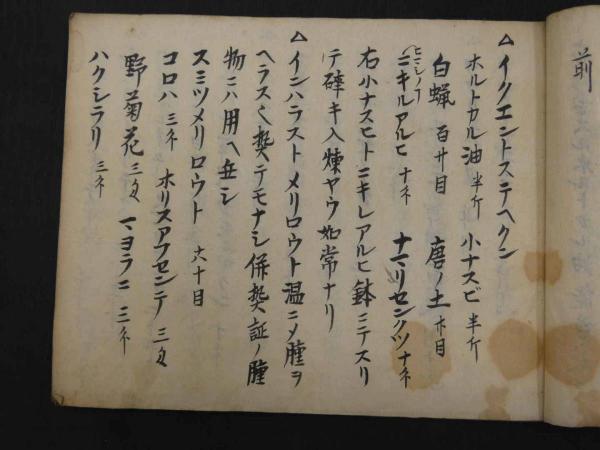 前
△イクエントステヘクン
ホルトカル油 半斤 小ナスビ 半斤
白蝋 百廿目 唐ノ土 廿目
ニキルアルヒ 十匁 ナマリセンクツ 十匁
右小ナスヒトニキレアルヒ鉢ニテスリ
テ碎キ入煉ヤウ如常ナリ
△インハラストメリロウト温ニメ腫ヲ
ヘラス又熱テモナシ併熱証ノ腫
物ニハ用ヘ无シ
スミツメリロウト 六十目
コロハ 三匁 ホリスアフセンテ 三匁
野菊花 三匁 マヨラニ 三匁
ハクシラリ 三匁